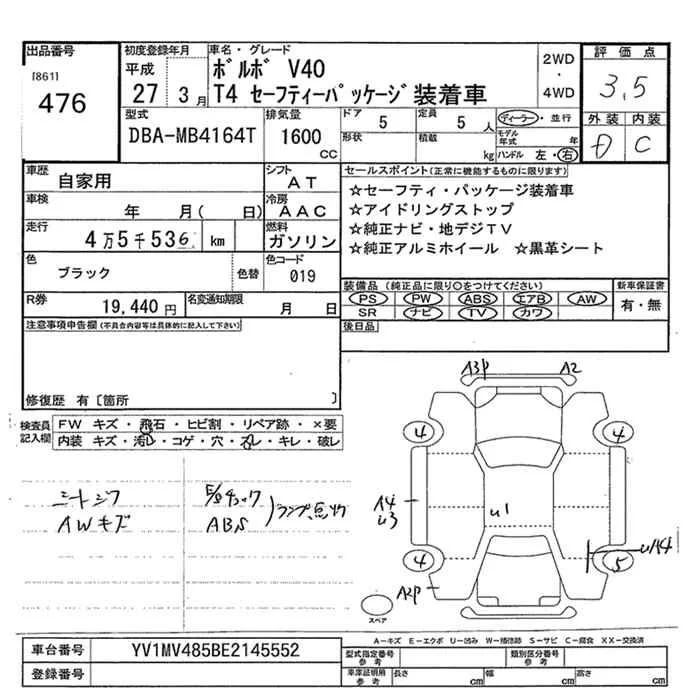 出品番号
[861]
476
初度登録年月
平成
27 3月
車名・グレード
ﾎﾞﾙﾎﾞ V40
T4 ｾｰﾌﾃｨｰﾊﾟｯｹｰｼﾞ装着車
2WD
・
4WD
評価点
3,5
外装 内装
C
型式
DBA-MB4164T
排気量
1600
CC
ドア
5
形状
定員
5 人
積載
kg
ディーラー・並行
モデル年式 年
ハンドル 左・右
車歴
自家用
シフト
AT
車検
年 月( 日)
冷房
AAC
走行
4万5千536 km
燃料
ガソリン
色
ブラック
色替
色コード
019
R券
19,440 円
名変通知期限
月 日
セールスポイント(正常に機能するものに限ります)
☆セーフティ・パッケージ装着車
☆アイドリングストップ
☆純正ナビ・地デジTV
☆純正アルミホイール ☆黒革シート
装備品(純正品に限り○をつけてください)
PS PW ABS エアB AW
SR ナビ TV カワ
新車保証書
有・無
後日品
注意事項申告欄(不具合内容等は具体的に記入して下さい)
修復歴 有〔箇所 〕
検査員
記入欄
FW キズ・飛石・ヒビ割・リペア跡・×要
内装 キズ・汚レ・コゲ・穴・スレ・キレ・破レ
シートシワ
AWキズ
ABS
ランプ点灯
A3P A2
4 4
A4
U3
U1
4 5
A2P
スペア
A-キズ E-エクボ U-凹み W-補修跡 S-サビ C-腐食 XX-交換済
車台番号
YV1MV485BE2145552
登録番号
型式指定番号
参考
類別区分番号
参考
車庫証明用
参考
長さ cm 幅 cm 高さ cm